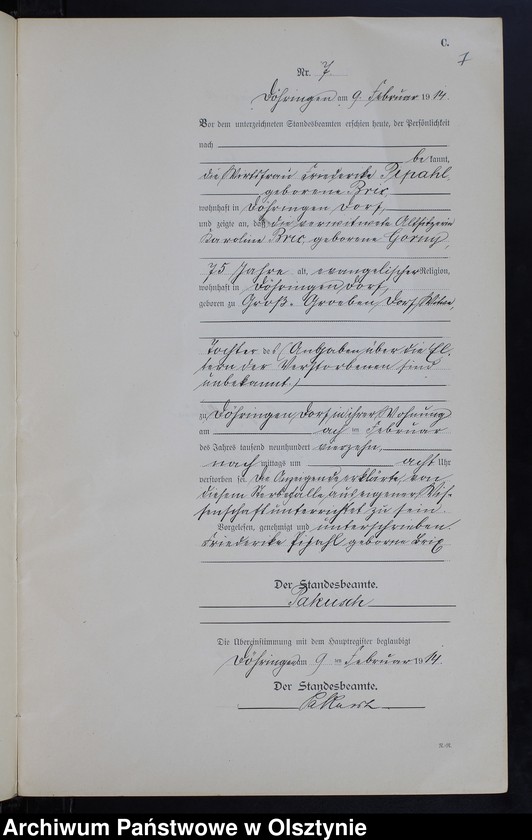 C.
7
Nr. 7
Döhringen am 9. Februar 1914.
Vor dem unterzeichneten Standesbeamten erschien heute, der Persönlichkeit
nach
be kannt,
die Wirtsfrau Friederike Pipahl,
geborene Bric
wohnhaft in Döhringen Dorf,
und zeigte an, daß die verwitwete Altsitzerin
Karoline Bric, geborene Gorny,
75 Jahre alt, evangelischer Religion,
wohnhaft in Döhringen Dorf,
geboren zu Groß-Groeben, Dorf, Witwe,
Tochter der (Angaben über die El-
tern der Verstorbenen sind
unbekannt)
zu Döhringen Dorf in ihrer Wohnung
am acht im Februar
des Jahres tausend neunhundert vierzehn,
nach mittags um acht Uhr
verstorben sei. Die Anzeigende erklärte, von
diesem Sterbefalle aus eigener Wis-
senschaft unterrichtet zu sein
Vorgelesen, genehmigt und unterschrieben.
Friederike Pipahl geborne Brix
Der Standesbeamte.
Pakusch
Die Übereinstimmung mit dem Hauptregister beglaubigt
Döhringen am 9. im Februar 1914.
Der Standesbeamte.
Archiwum Państwowe w Olsztynie